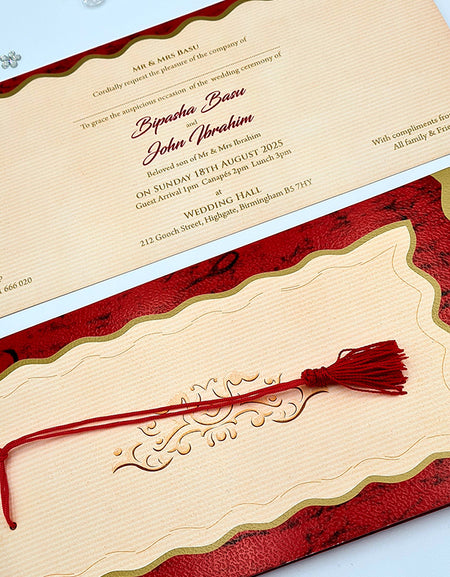 Mr & Mrs Basu
Cordially request the pleasure of the company of
To grace the auspicious occasion of the wedding ceremony of
Bipasha Basu
and
John Ibrahim
Beloved son of Mr & Mrs Ibrahim
on Sunday 18th August 2025
Guest Arrival 1pm Canapés 2pm Lunch 3pm
at
Wedding Hall
212 Gooch Street, Highgate, Birmingham B5 7HY
With compliments from
All family & Frie
P
666 020